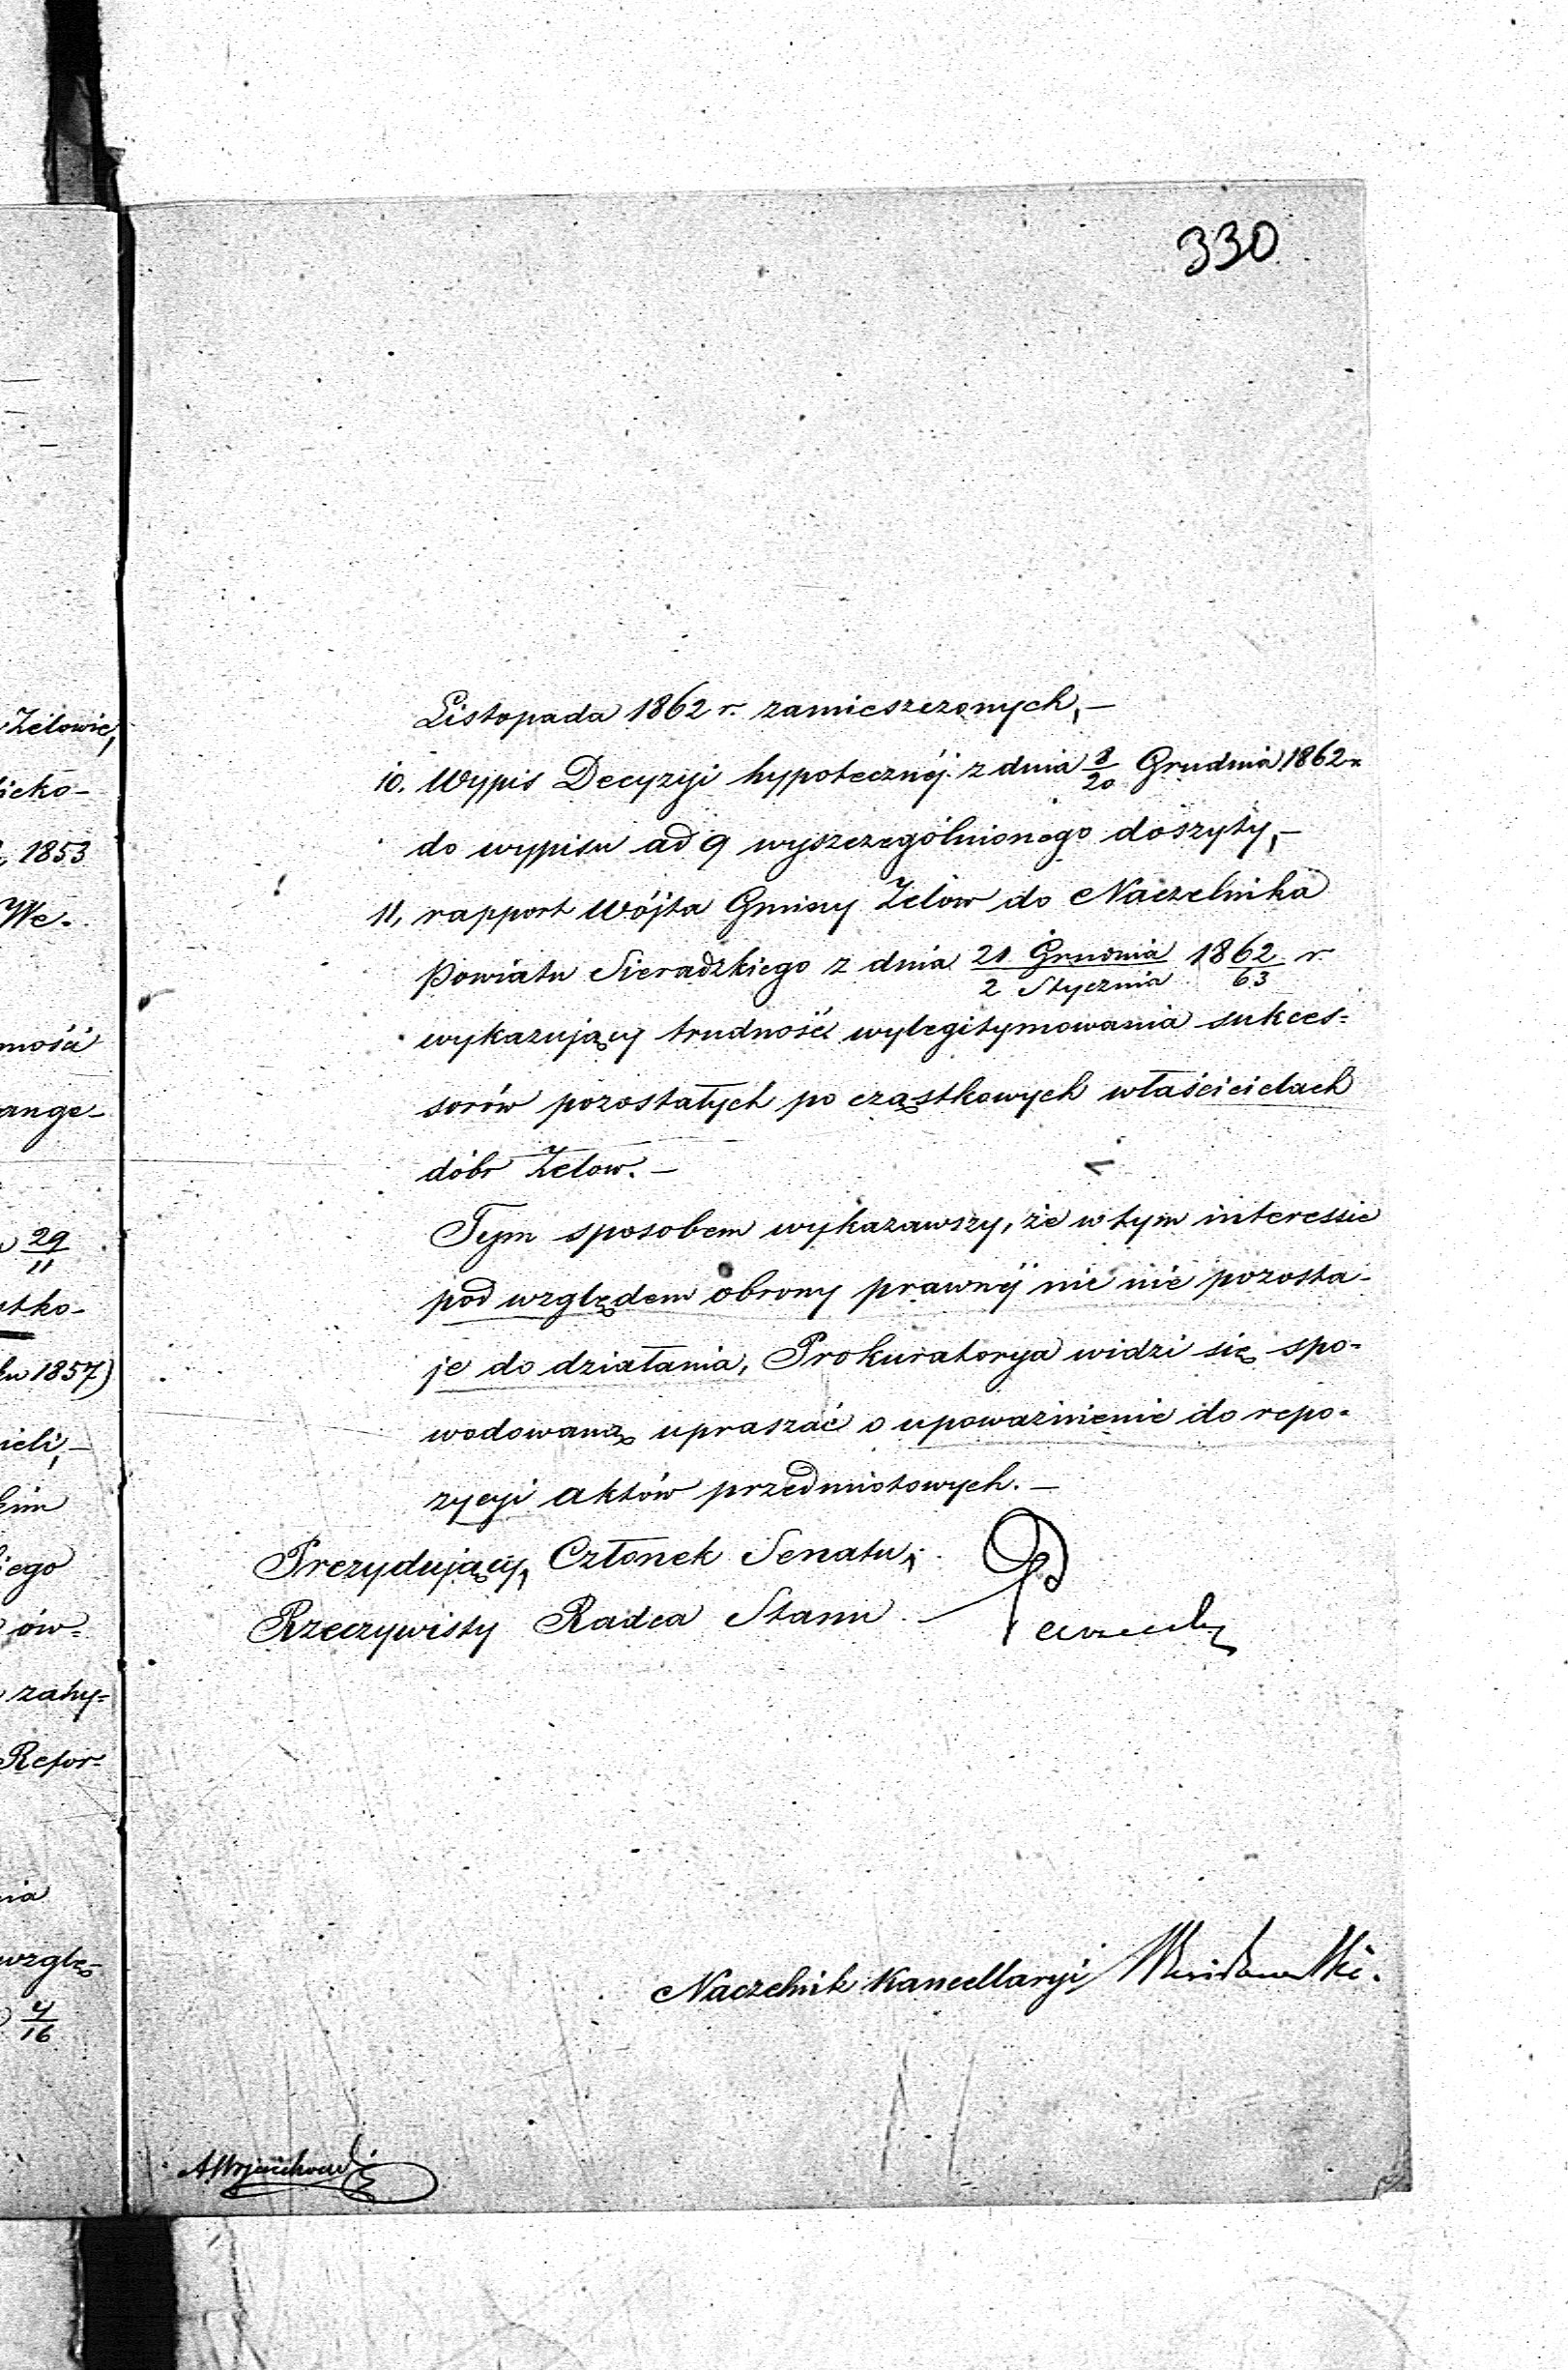 330
Listopada 1862 r. zamieszczonych,—
10. Wypis Decyzyi hypotecznéj z dnia 8/20 Grudnia 1862 r.
do wypisu ad 9 wyszczególnionego doszyty,—
11, rapport Wójta Gminy Zelów do Naczelnika
Powiatu Sieradzkiego z dnia 21 Grudnia/2 Stycznia 1862/63 r.
wykazujący trudność wylegitymowania sukces=
sorów pozostałych po cząstkowych właścicielach
dóbr Zelow.—
Tym sposobem wykazawszy, że w tym interessie
pod względem obrony prawnéj nic nie pozosta-
je do działania, Prokuratorya widzi się spo-
wodowaną upraszać o upoważnienie do repo-
zycyi aktów przedmiotowych.—
Prezydujący, Członek Senatu,
Rzeczywisty Radca Stanu
Naczelnik Kancellaryi
Zelowie,
icko-
1853
We.
mość
ange-
29/11
stko-
ku 1857)
ieli,—
kim
iego
ów=
zahy=
Refor=
nia
wzglę-
4/16